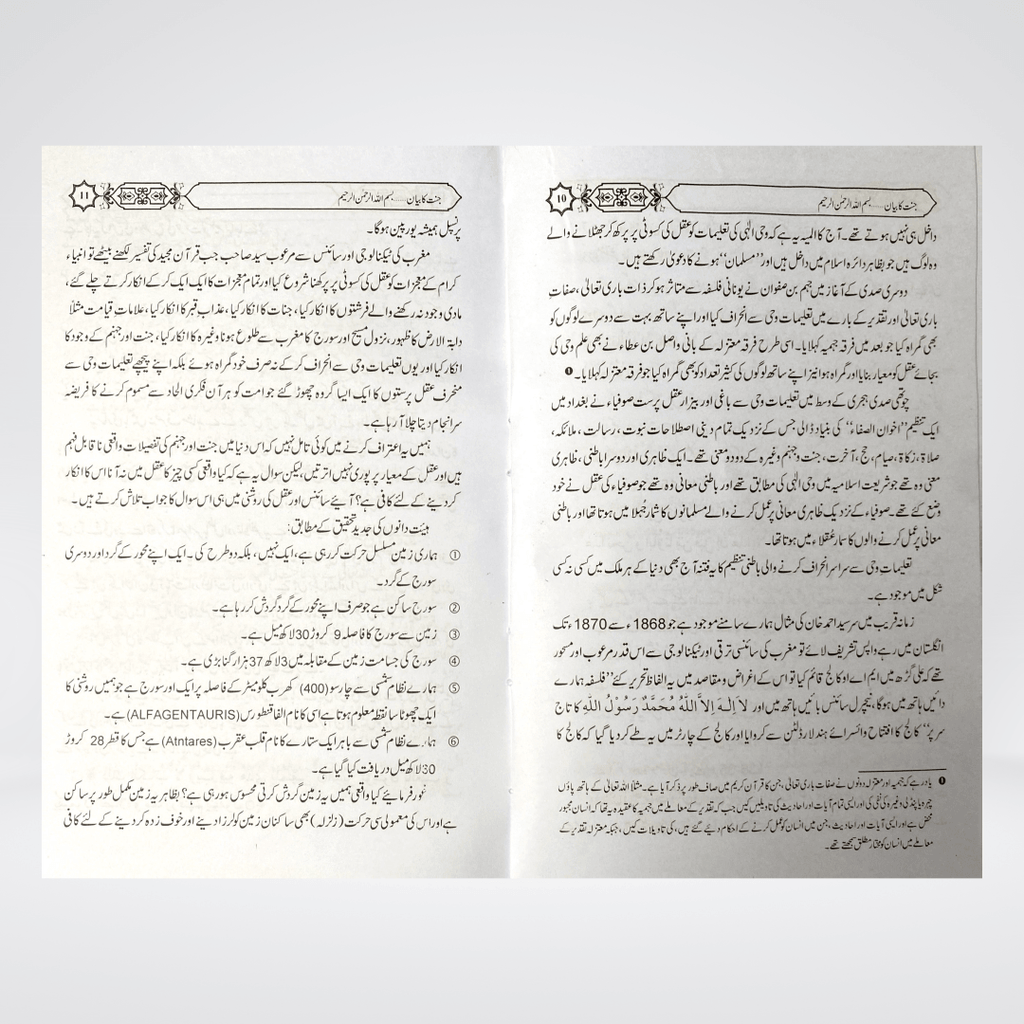 جنت کا بیان......بسم اللہ الرحمٰن الرحیم
10
داخل ہی نہیں ہوتے تھے۔ آج کا المیہ یہ ہے کہ وحی الٰہی کی تعلیمات کو عقل کی کسوٹی پر پرکھ کر جھٹلانے والے
وہ لوگ ہیں جو بظاہر دائرہ اسلام میں داخل ہیں اور ”مسلمان“ ہونے کا دعویٰ رکھتے ہیں۔
دوسری صدی کے آغاز میں جہم بن صفوان نے یونانی فلسفہ سے متاثر ہو کر ذات باری تعالیٰ، صفاتِ
باری تعالیٰ اور تقدیر کے بارے میں تعلیمات وحی سے انحراف کیا اور اپنے ساتھ بہت سے دوسرے لوگوں کو
بھی گمراہ کیا جو بعد میں فرقہ جہمیہ کہلایا۔ اسی طرح فرقہ معتزلہ کے بانی واصل بن عطاء نے بھی علم وحی کی
بجائے عقل کو معیار بنایا اور گمراہ ہوا نیز اپنے ساتھ لوگوں کی کثیر تعداد کو بھی گمراہ کیا جو فرقہ معتزلہ کہلایا۔ ❶
چوتھی صدی ہجری کے وسط میں تعلیمات وحی سے باغی اور بیزار عقل پرست صوفیاء نے بغداد میں
ایک تنظیم ”اخوان الصفاء“ کی بنیاد ڈالی جس کے نزدیک تمام دینی اصطلاحات نبوت، رسالت، ملائکہ،
صلاۃ، زکاۃ، صیام، حج، آخرت، جنت و جہنم وغیرہ کے دو دو معنی تھے۔ ایک ظاہری اور دوسرا باطنی، ظاہری
معنی وہ تھے جو شریعت اسلامیہ میں وحی الٰہی کی مطابق تھے اور باطنی معانی وہ تھے جو صوفیاء کی عقل نے خود
وضع کئے تھے۔ صوفیاء کے نزدیک ظاہری معانی پر عمل کرنے والے مسلمانوں کا شمار جہلا میں ہوتا تھا اور باطنی
معانی پر عمل کرنے والوں کا سمار عقلاء میں ہوتا تھا۔
تعلیمات وحی سے سراسر انحراف کرنے والی باطنی تنظیم کا یہ فتنہ آج بھی دنیا کے ہر ملک میں کسی نہ کسی
شکل میں موجود ہے۔
زمانہ قریب میں سرسید احمد خان کی مثال ہمارے سامنے موجود ہے جو 1868ء سے 1870ء تک
انگلستان میں رہے واپس تشریف لائے تو مغرب کی سائنسی ترقی اور ٹیکنالوجی سے اس قدر مرعوب اور مسحور
تھے کہ علی گڑھ میں ایم اے او کالج قائم کیا تو اس کے اغراض و مقاصد میں یہ الفاظ تحریر کئے ”فلسفہ ہمارے
دائیں ہاتھ میں ہوگا، نیچرل سائنس بائیں ہاتھ میں اور لاَ اِلٰهَ اِلاَّ اللّٰهُ مُحَمَّدٌ رَسُوْلُ اللّٰهِ کا تاج
سر پر“ کالج کا افتتاح وائسرائے ہند لارڈ لٹن سے کروایا اور کالج کے چارٹر میں یہ طے کر دیا گیا کہ کالج کا
❶ یاد رہے کہ جہمیہ اور معتزلہ دونوں نے صفات باری تعالیٰ، جن کا قرآن کریم میں صاف طور پر ذکر آیا ہے۔ مثلاً اللہ تعالیٰ کے ہاتھ پاؤں
چہرہ یا پنڈلی وغیرہ کی نفی کی اور ایسی تمام آیات اور احادیث کی تاویلیں کیں جب کہ تقدیر کے معاملے میں جہمیہ کا عقیدہ یہ تھا کہ انسان مجبور
محض ہے اور ایسی آیات اور احادیث، جن میں انسان کو عمل کرنے کے احکام دیئے گئے ہیں، کی تاویلات کیں، جبکہ معتزلہ تقدیر کے
معاملے میں انسان کو مختار مطلق سمجھتے تھے۔
جنت کا بیان......بسم اللہ الرحمٰن الرحیم
11
پرنسپل ہمیشہ یورپین ہوگا۔
مغرب کی ٹیکنالوجی اور سائنس سے مرعوب سید صاحب جب قرآن مجید کی تفسیر لکھنے بیٹھے تو انبیاء
کرام کے معجزات کو عقل کی کسوٹی پر پرکھنا شروع کیا اور تمام معجزات کا ایک ایک کر کے انکار کرتے چلے گئے،
مادی وجود نہ رکھنے والے فرشتوں کا انکار کیا، جنات کا انکار کیا، عذاب قبر کا انکار کیا، علاماتِ قیامت مثلاً
دابۃ الارض کا ظہور، نزول مسیح اور سورج کا مغرب سے طلوع ہونا وغیرہ کا انکار کیا، جنت اور جہنم کے وجود کا
انکار کیا اور یوں تعلیمات وحی سے انحراف کر کے نہ صرف خود گمراہ ہوئے بلکہ اپنے پیچھے تعلیمات وحی سے
منحرف عقل پرستوں کا ایک ایسا گروہ چھوڑ گئے جو امت کو ہر آن فکری الحاد سے مسموم کرنے کا فریضہ
سرانجام دیتا چلا آ رہا ہے۔
ہمیں یہ اعتراف کرنے میں کوئی تامل نہیں کہ اس دنیا میں جنت اور جہنم کی تفصیلات واقعی ناقابل فہم
ہیں اور عقل کے معیار پر پوری نہیں اترتیں، لیکن سوال یہ ہے کہ کیا واقعی کسی چیز کا عقل میں نہ آنا اس کا انکار
کر دینے کے لئے کافی ہے؟ آیئے سائنس اور عقل کی روشنی میں ہی اس سوال کا جواب تلاش کرتے ہیں۔
ہیئت دانوں کی جدید تحقیق کے مطابق:
① ہماری زمین مسلسل حرکت کر رہی ہے، ایک نہیں، بلکہ دو طرح کی۔ ایک اپنے محور کے گرد اور دوسری
سورج کے گرد۔
② سورج ساکن ہے جو صرف اپنے محور کے گرد گردش کر رہا ہے۔
③ زمین سے سورج کا فاصلہ 9 کروڑ 30 لاکھ میل ہے۔
④ سورج کی جسامت زمین کے مقابلہ میں 3 لاکھ 37 ہزار گنا بڑی ہے۔
⑤ ہمارے نظام شمسی سے چار سو (400) کھرب کلومیٹر کے فاصلہ پر ایک اور سورج ہے جو ہمیں روشنی کا
ایک چھوٹا سا نقطہ معلوم ہوتا ہے اسی کا نام الفا قنطورس (ALFAGENTAURIS) ہے۔
⑥ ہمارے نظام شمسی سے باہر ایک ستارے کا نام قلب عقرب (Atntares) ہے جس کا قطر 28 کروڑ
30 لاکھ میل دریافت کیا گیا ہے۔
غور فرمائیے کیا واقعی ہمیں یہ زمین گردش کرتی محسوس ہو رہی ہے؟ بظاہر یہ زمین مکمل طور پر ساکن
ہے اور اس کی معمولی سی حرکت (زلزلہ) بھی ساکنان زمین کو لرزا دینے اور خوف زدہ کر دینے کے لئے کافی